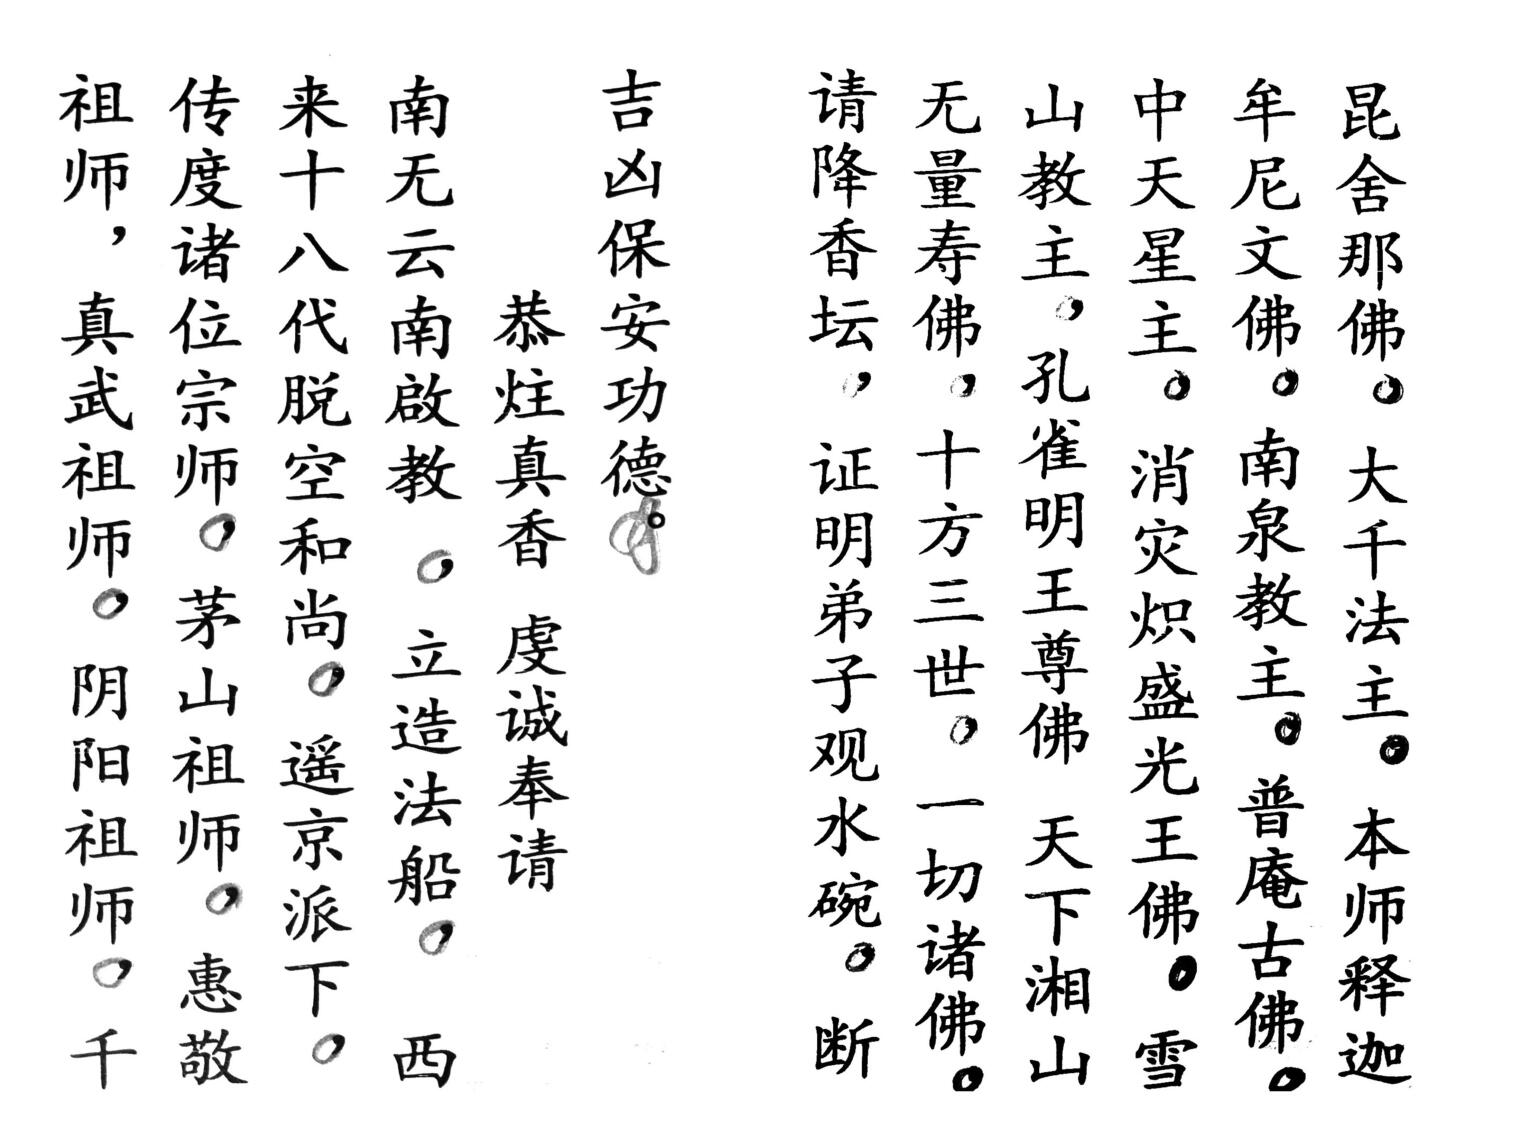 昆舍那佛。大千法主。本师释迦
牟尼文佛。南泉教主。普庵古佛。
中天星主。消灾炽盛光王佛。雪
山教主。孔雀明王尊佛 天下湘山
无量寿佛，十方三世。一切诸佛。
请降香坛，证明弟子观水碗。断
吉凶保安功德。
恭炷真香 虔诚奉请
南无云南啟教。立造法船。西
来十八代脱空和尚。遥京派下。
传度诸位宗师。茅山祖师。惠敬
祖师，真武祖师。阴阳祖师。千